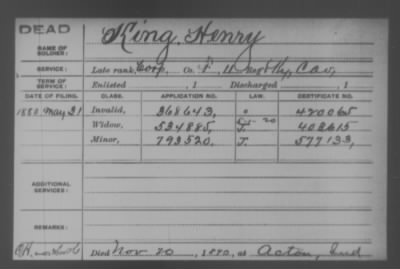 DEAD
King, Henry
NAME OF SOLDIER:
SERVICE: Late rank, Corp, Co. F, 11 Reg't Ky. Cav,
TERM OF SERVICE: Enlisted , 1 Discharged , 1
DATE OF FILING. CLASS. APPLICATION NO. LAW. CERTIFICATE NO.
1880 May 21 Invalid, 368643, " 420065
Widow, 534885, 402615
Minor, 793520, J. 577133,
ADDITIONAL SERVICES:
REMARKS:
Died Nov 20, 1890, at Acton, Ind